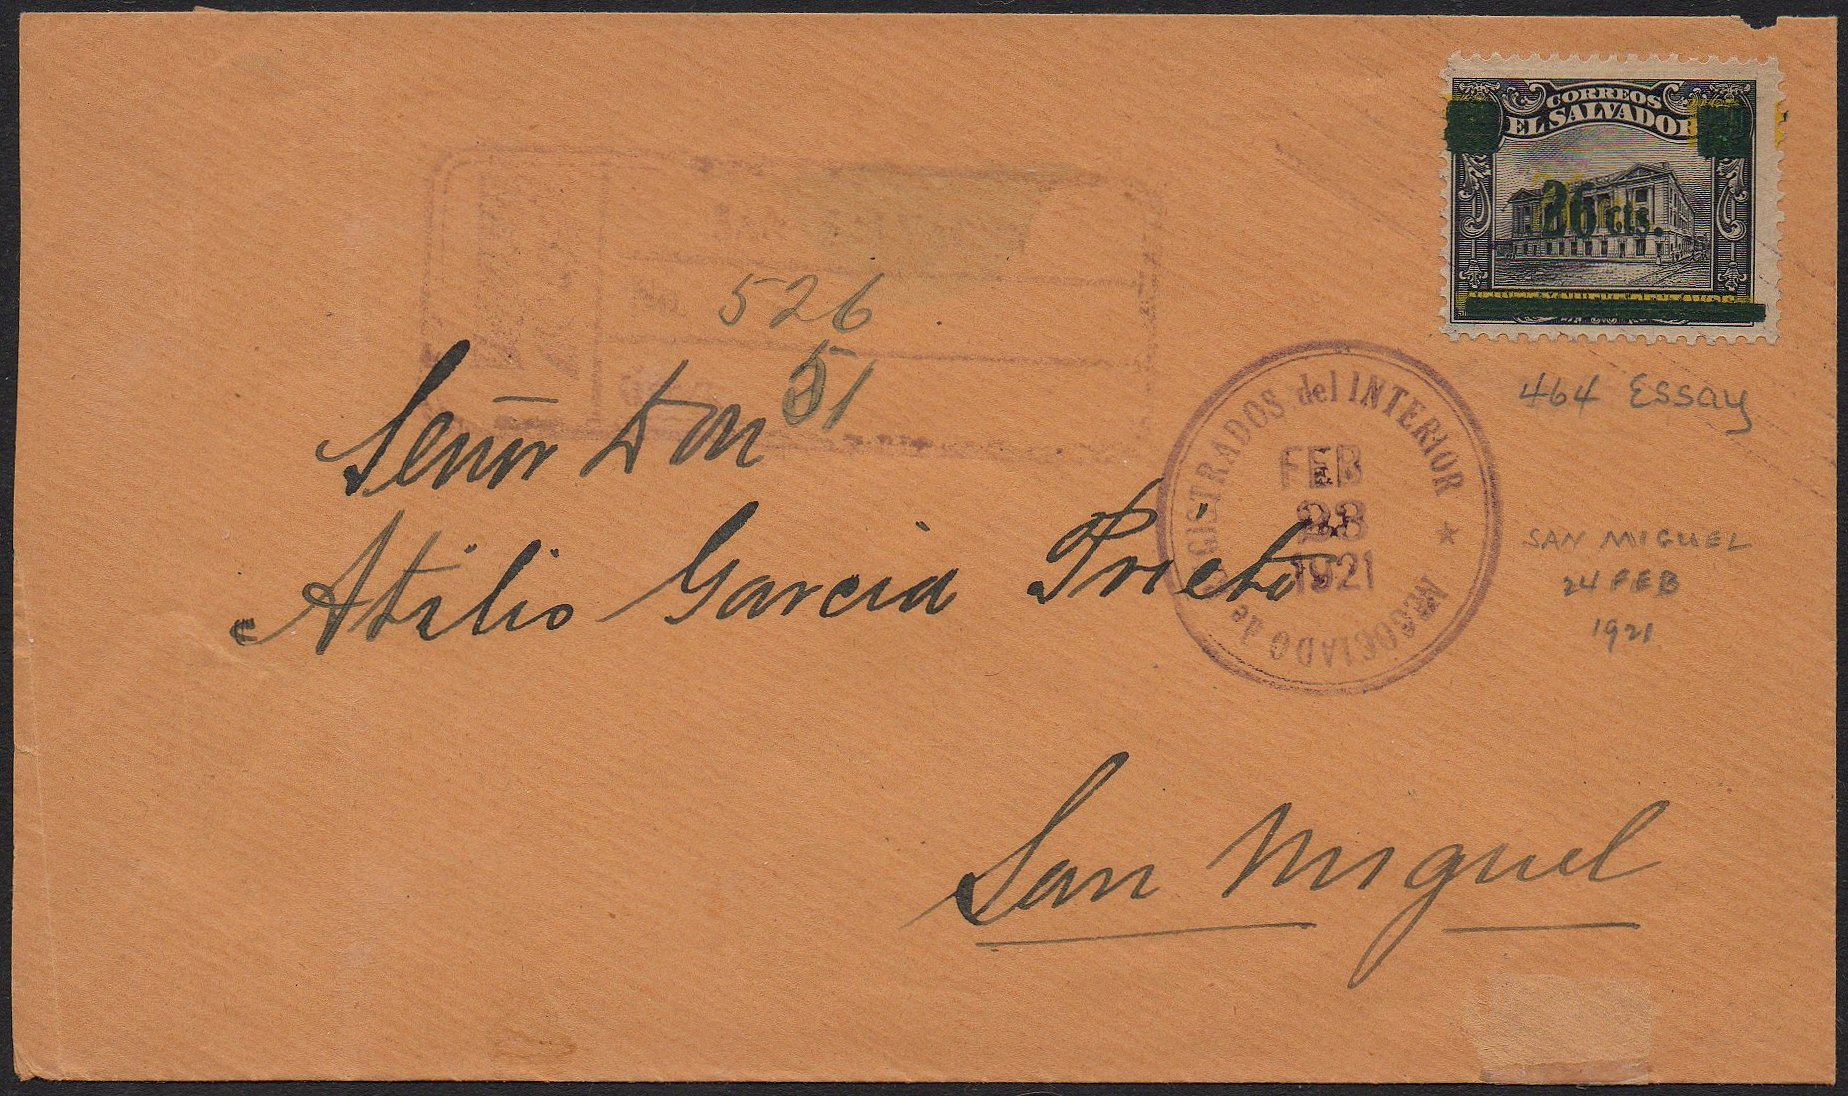 CORREOS
EL SALVADOR
cts.
526
51
464 Essay
Señor Don
Atilio Garcia Prieto
NEGOCIADO de REGISTRADOS del INTERIOR ★
FEB
23
1921
SAN MIGUEL
24 FEB
1921
San Miguel